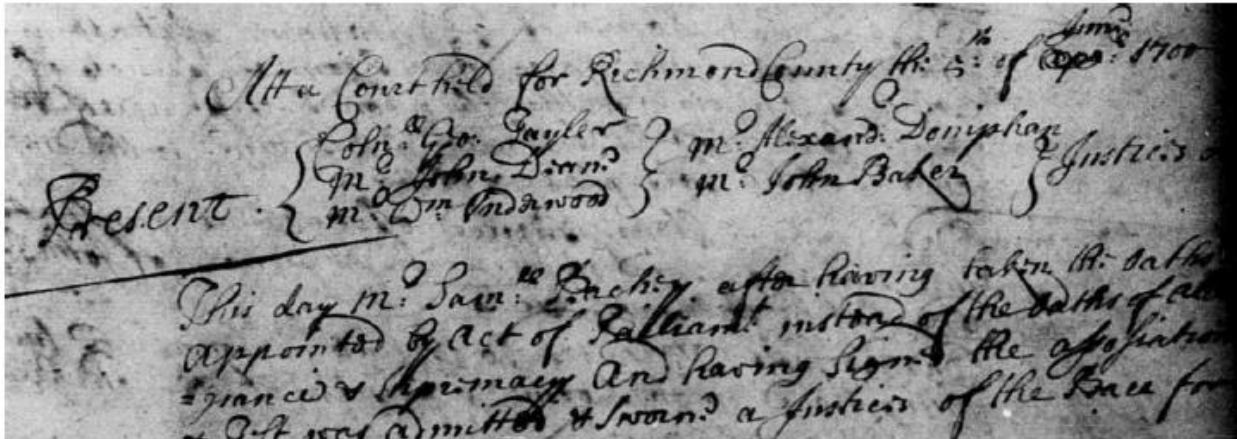 Att a Court held for Richmond County the 5:th of June 1700
Present Coln:ll Geo: Tayler mr: Alexand: Doniphan Justices
mr: John Deane mr: John Baker
mr: Wm Underwood
This day mr: Sam:ll Peachey after having taken the oaths
appointed by act of Parliamt instead of the oaths of Alle
=giance & supremacy And having signed the assosiation
& Test was admitted & sworne a Justice of the Peace for